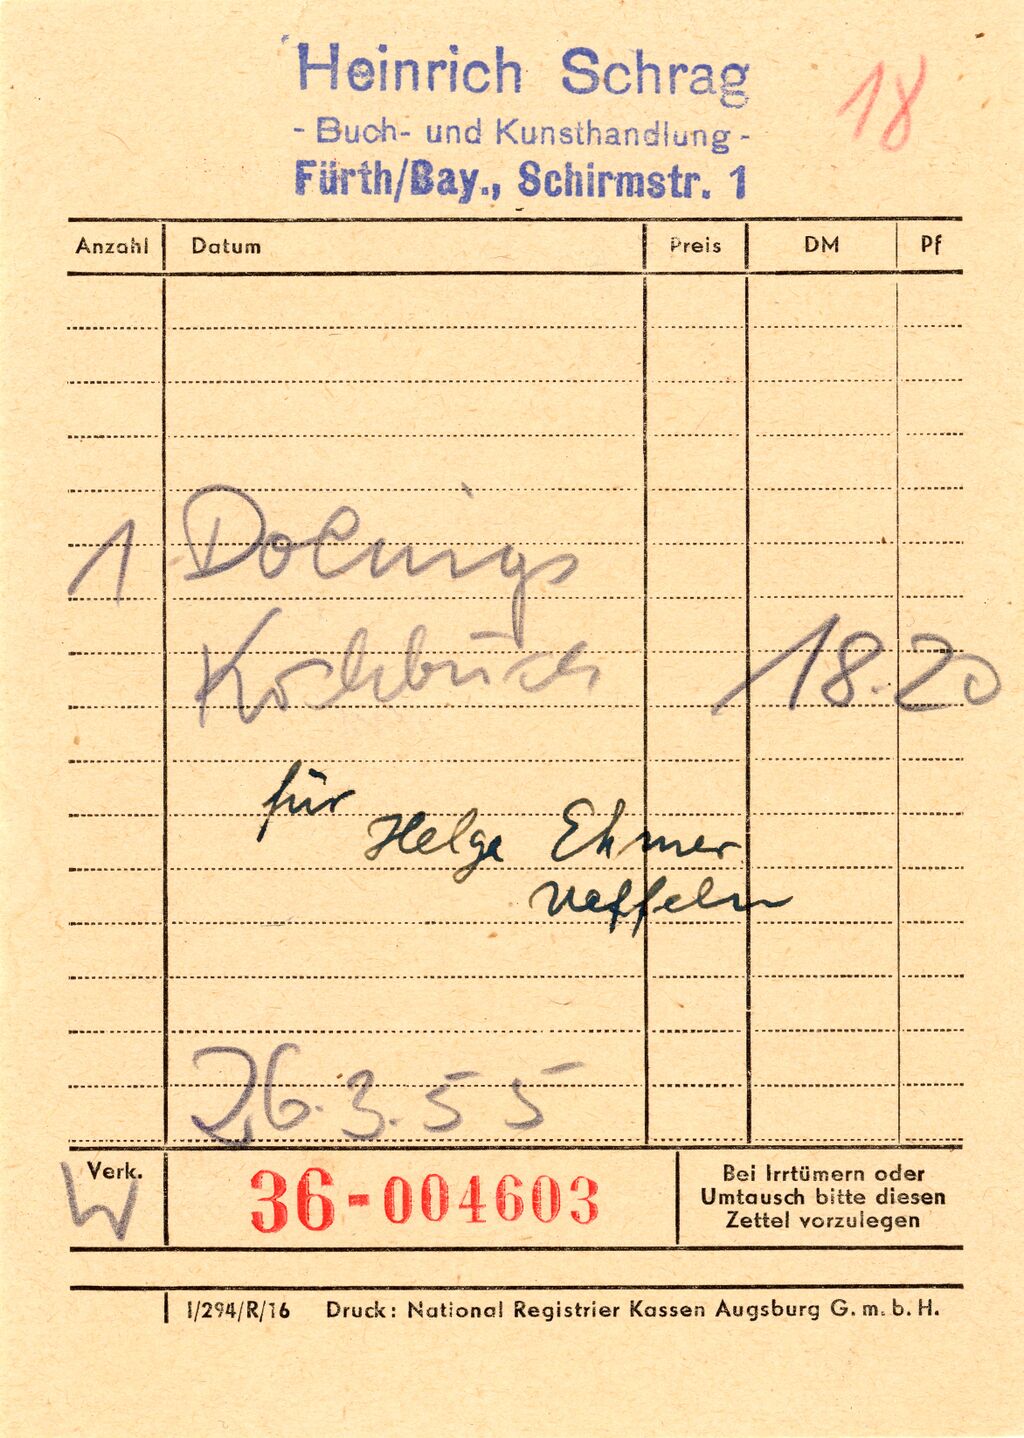 Heinrich Schrag
18
- Buch- und Kunsthandlung -
Fürth/Bay., Schirmstr. 1
Anzahl Datum Preis DM Pf
1 Doenigs
Kochbuch 18.20
für
Helga Ehmer
26.3.55
Verk. W
36-004603
Bei Irrtümern oder
Umtausch bitte diesen
Zettel vorzulegen
I/294/R/16 Druck: National Registrier Kassen Augsburg G. m. b. H.